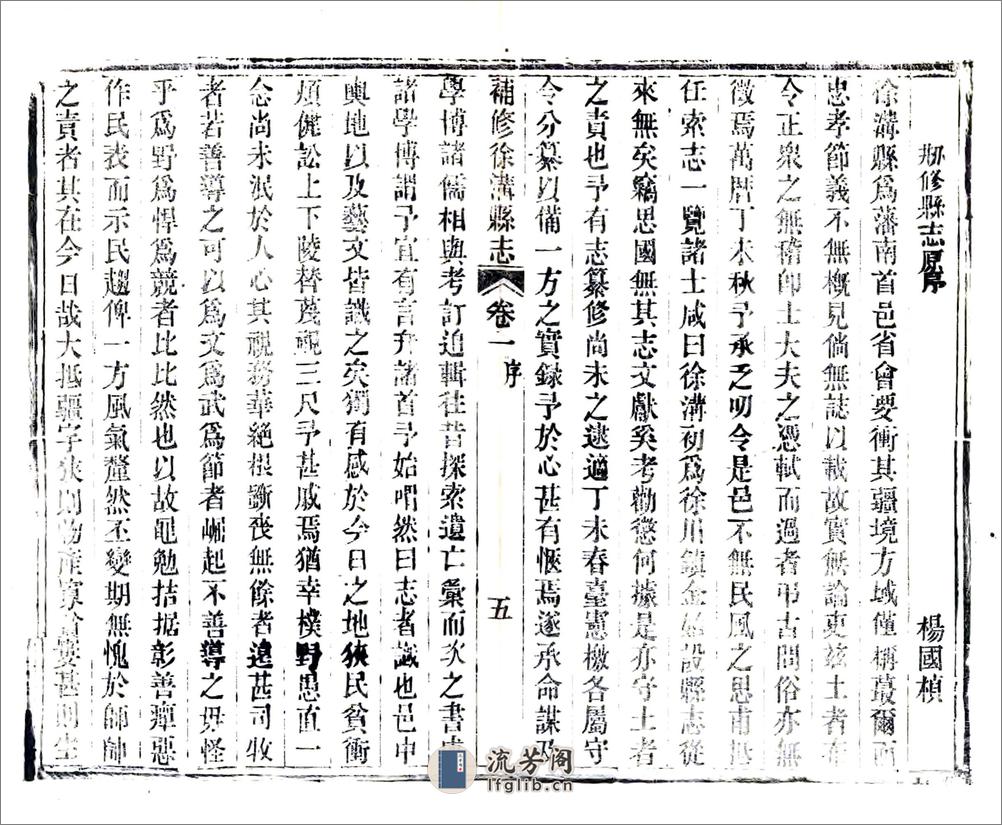 刱修縣志原序
楊國楨
徐溝縣爲藩南首邑省會要衝其疆境方域僅稱蕞爾而
忠孝節義不無槪見倘無誌以載故實無論吏玆土者布
令正衆之無稽卽士大夫之憑軾而過者弔古問俗亦無
徵焉萬曆丁未秋予承乏叨令是邑不無民風之思甫
任索志一覽諸士咸曰徐溝初爲徐川鎮金始設縣志從
來無矣竊思國無其志文獻奚考勸懲何據是亦守土者
之責也予有志纂修尚未之逮適丁未春臺憲檄各屬守
令分纂以備一方之實録予於心甚有愜焉遂承命謀及
補修徐溝縣志 卷一 序 五
學博諸儒相與考訂迨輯往昔探索遺亡彙而次之書
諸學博謂予宜有言弁諸首予始喟然曰志者識也邑中
輿地以及藝文皆識之矣獨有感於今日之地狹民貧衝
煩健訟上下陵替蔑視三尺予甚戚焉猶幸樸野愚直一
念尚未泯於人心其視務華絕根斵喪無餘者遠甚司牧
者若善導之可以爲文爲武爲節者崛起不善導之毋怪
乎爲野爲悍爲競者比比然也以故黽勉拮据彰善癉惡
作民表而示民趨俾一方風氣釐然丕變期無愧於師帥
之責者其在今日哉大抵疆字狹則物産寡 甚則生